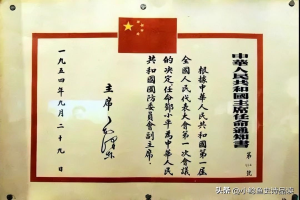 中華人民共和國主席任命通知書
根據中華人民共和國第一屆
全國人民代表大會第一次會議
的決定任命鄧小平為中華人民
共和國國防委員會副主席
主席 毛澤東
一九五四年九月二十九日
头条@小鲍鱼史海品鉴